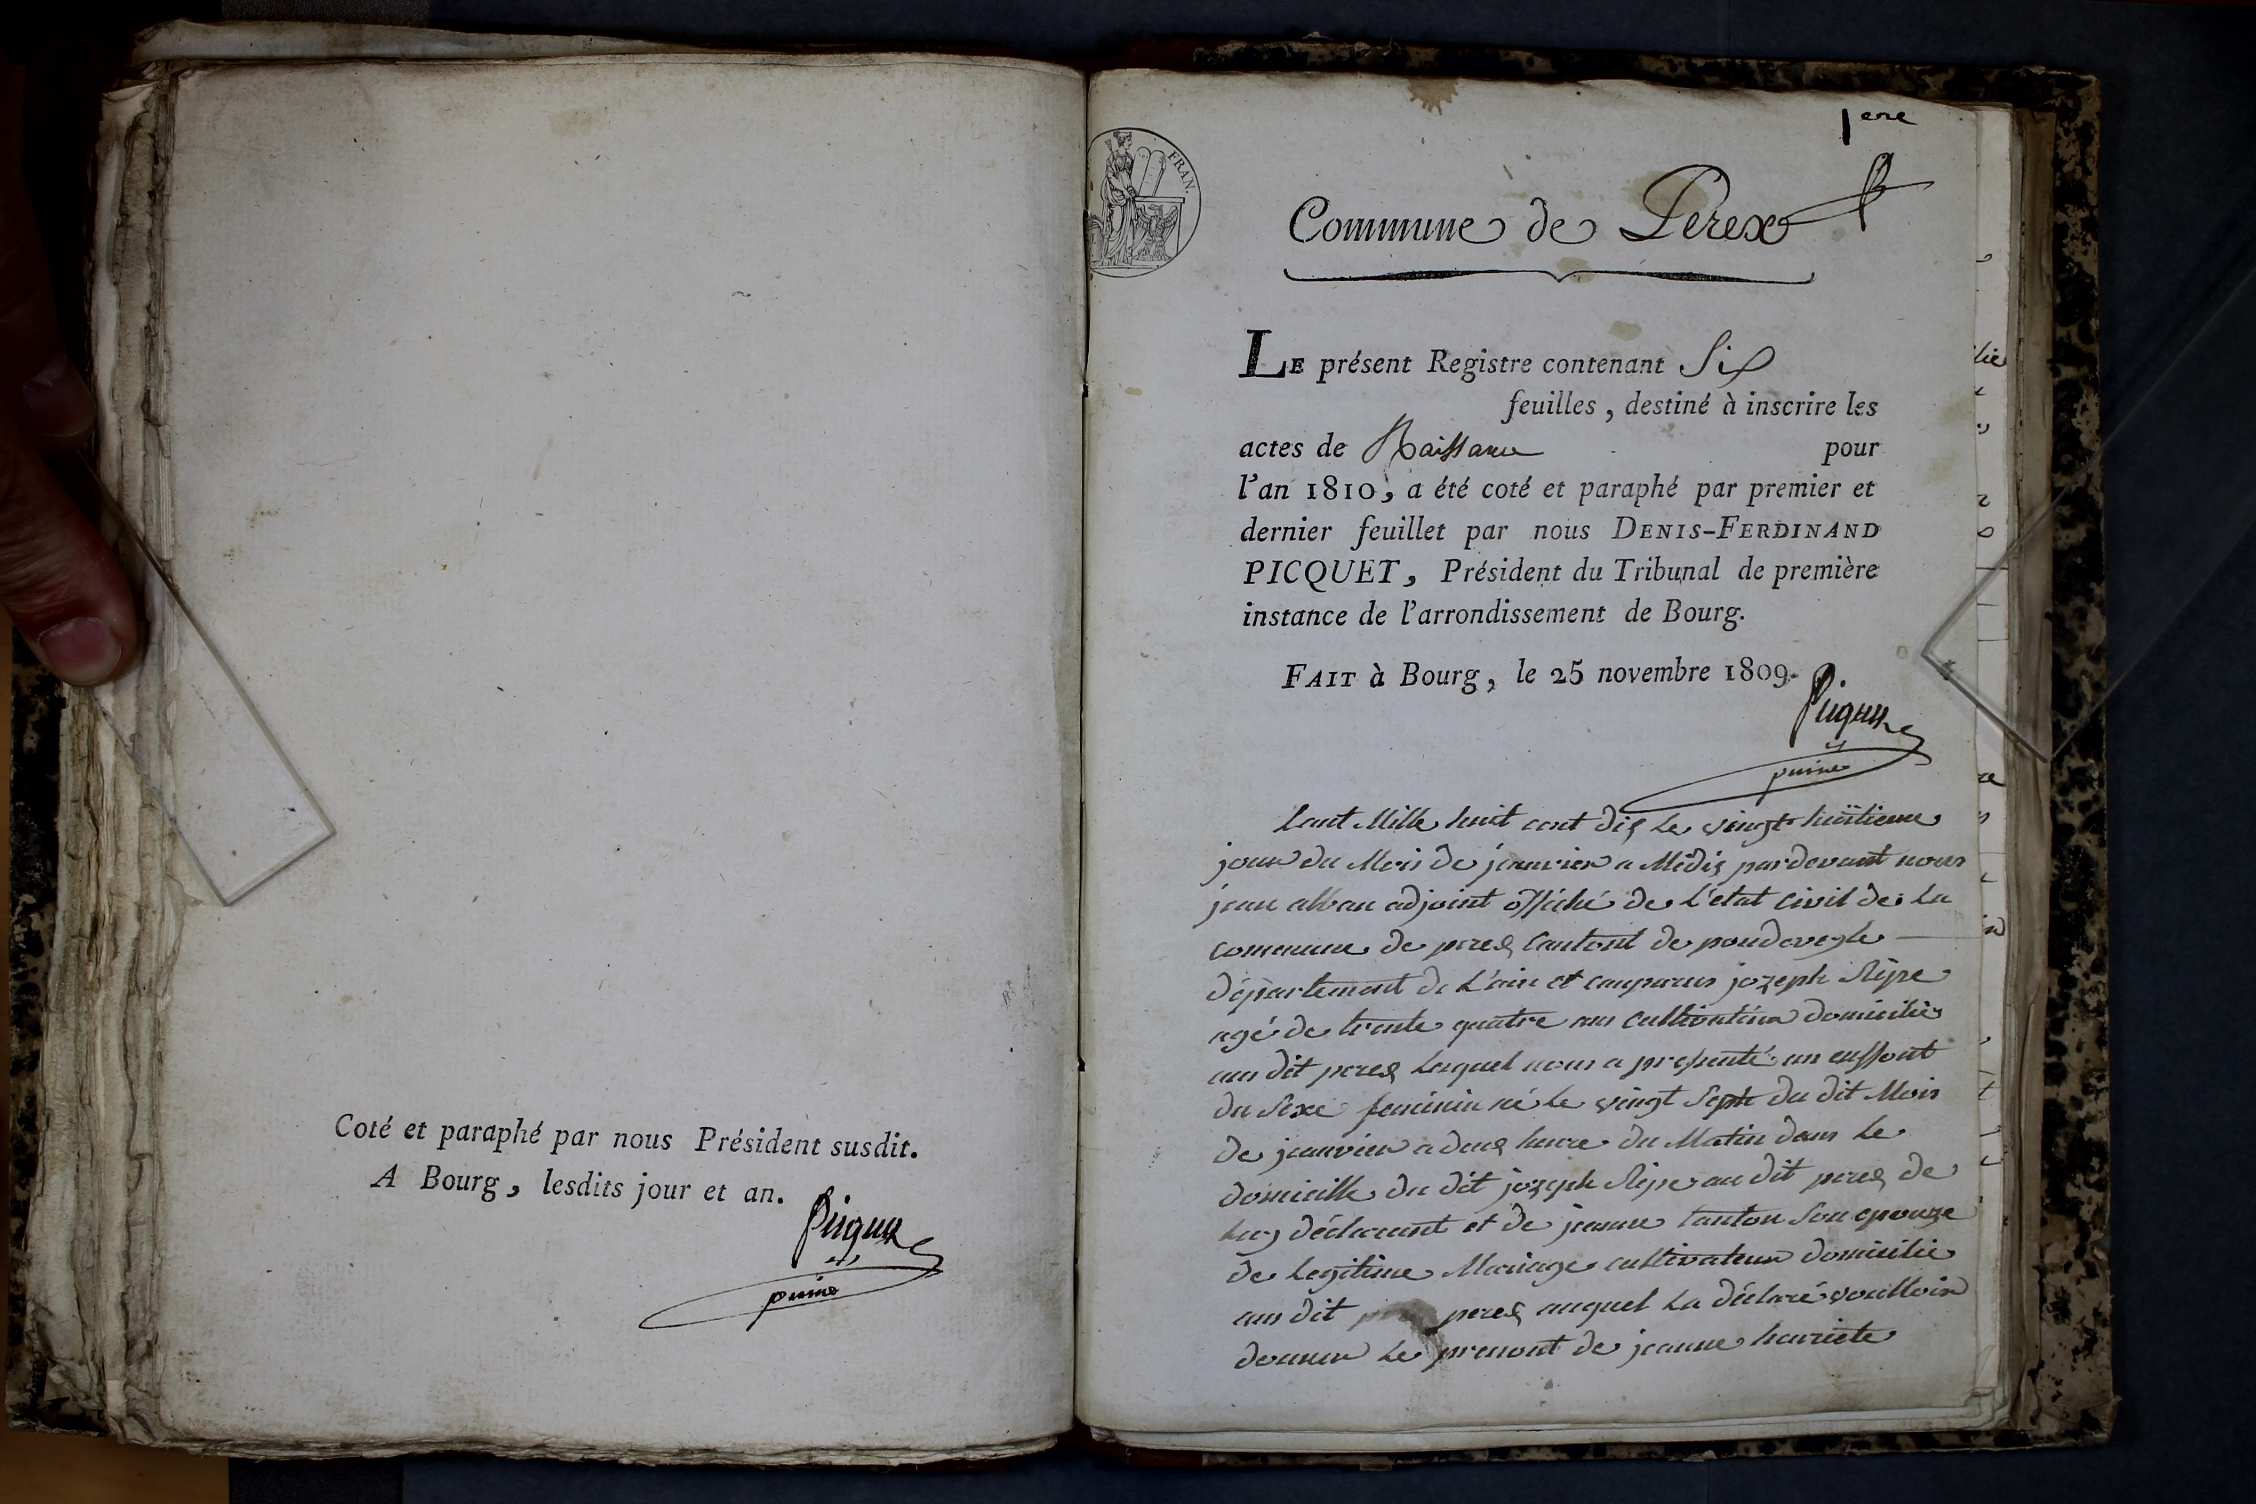 Coté et paraphé par nous Président susdit.
A Bourg, lesdits jour et an.
Picquet
1ere
FRAN.
Commune de Perex
LE présent Registre contenant Six
feuilles, destiné à inscrire les
actes de Naissance pour
l'an 1810, a été coté et paraphé par premier et
dernier feuillet par nous DENIS-FERDINAND
PICQUET, Président du Tribunal de première
instance de l'arrondissement de Bourg.
FAIT à Bourg, le 25 novembre 1809.
Picquet
Lant Mille huit cent dix le vingt huitieme
jour du Mois de janvier a Midis pardevant nous
jean alban adjoint officié de L'état Civil de La
commune de perex Cantont de pondeveyle
département de L'ain et comparus jozeph
agé de trente quatre ans cultivateur domicilié
au dit perex Lequel nous a presenté un enffant
du Sexe feminin né le vingt Septe du dit Mois
de janvier a deux heure du Matin dans Le
domicille du dit jozeph au dit perex de
Luy déclarant et de jeanne tanton Son epouze
de Legitime Mariage cultivateur domicilié
au dit perex auquel La déclaré voulloir
donner Le prenont de jeanne henriete